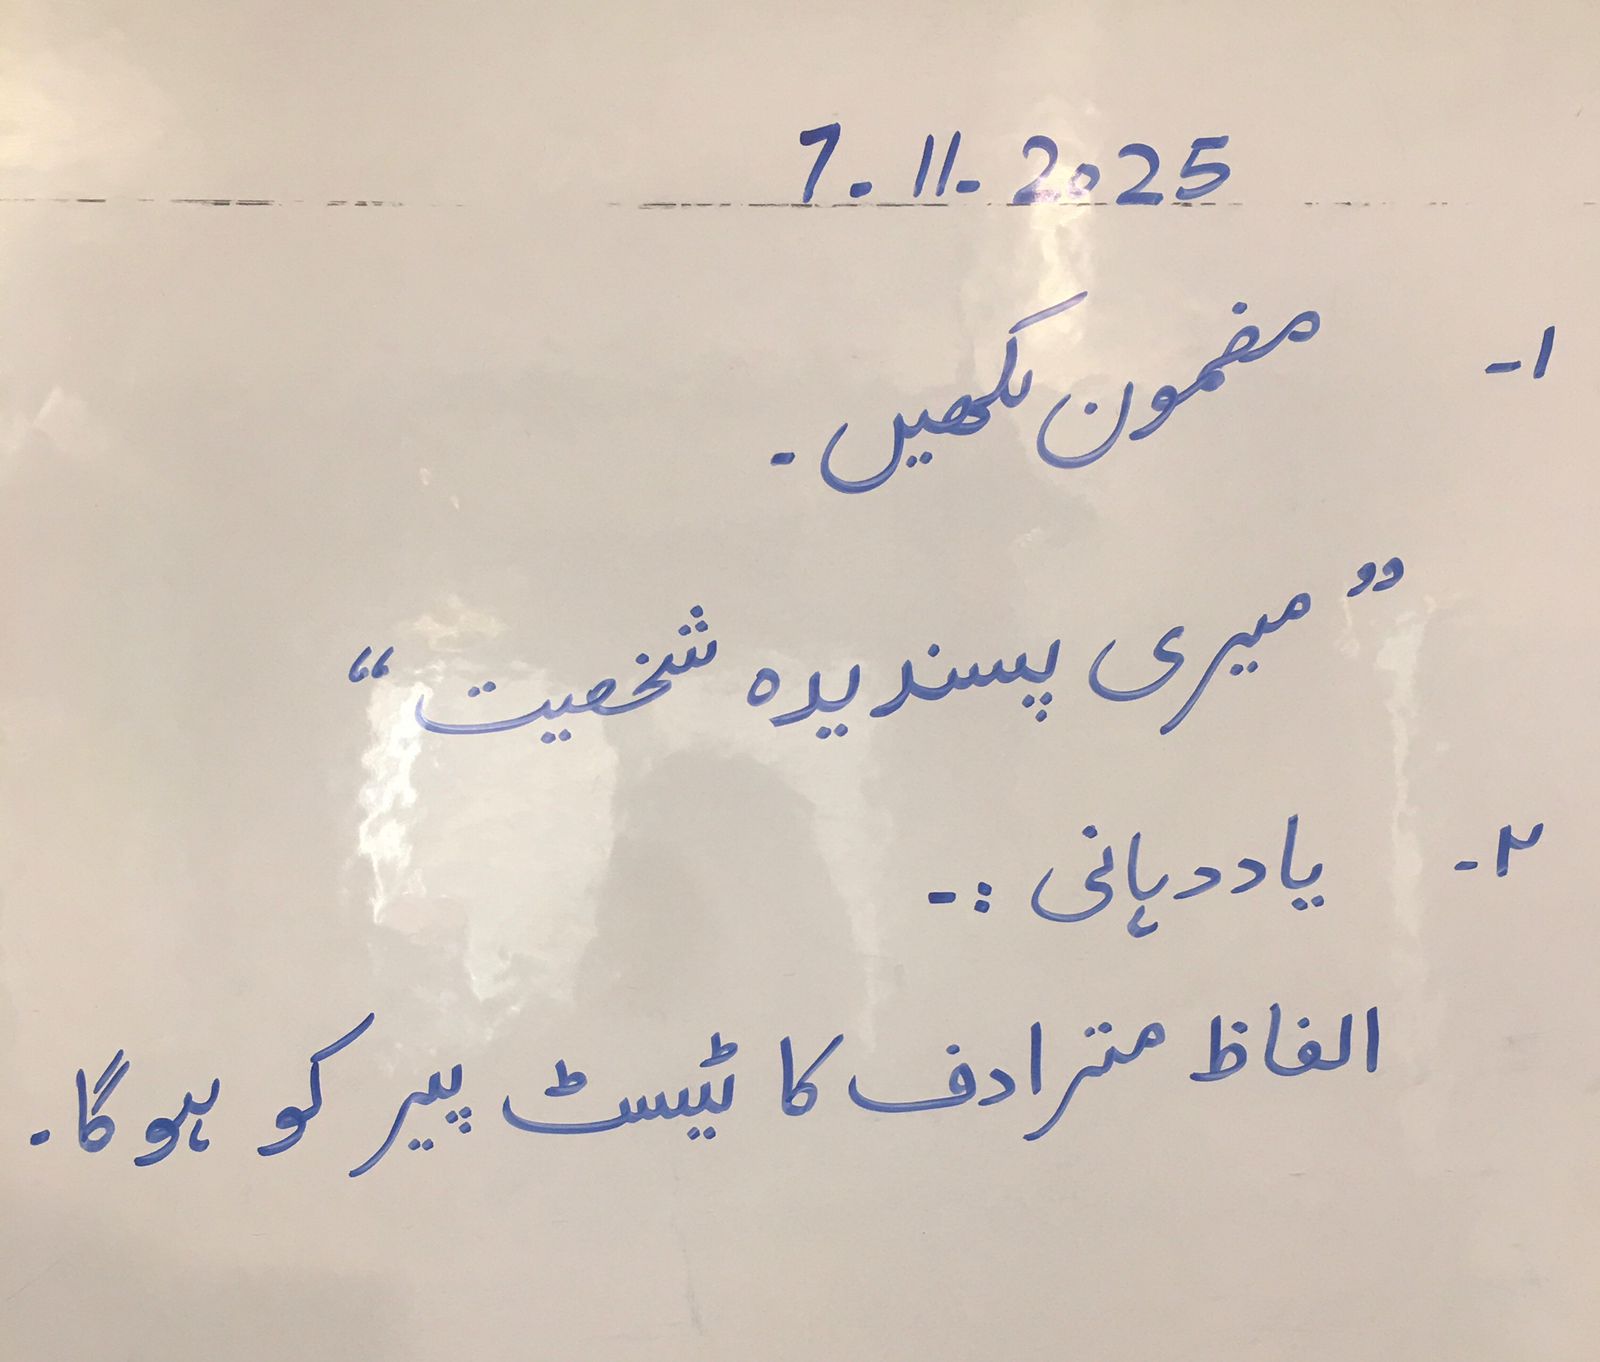 7.11.2025
۱- مضمون لکھیں۔
”میری پسندیدہ شخصیت“
۲- یاددہانی :-
الفاظ مترادف کا ٹیسٹ پیر کو ہوگا۔